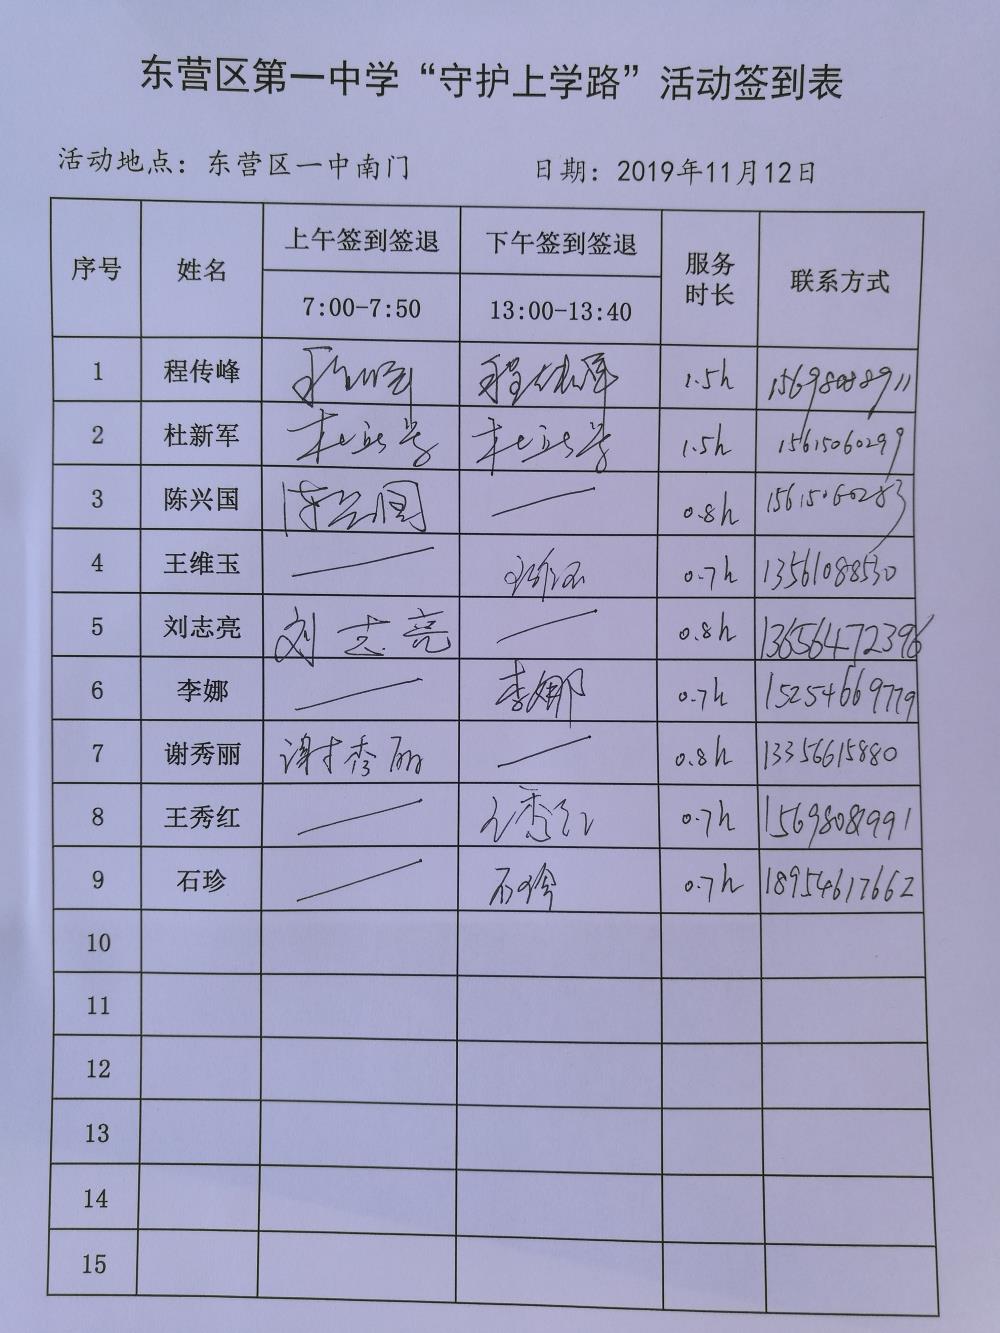 东营区第一中学“守护上学路”活动签到表
活动地点：东营区一中南门 日期：2019年11月12日
序号 姓名 上午签到签退 下午签到签退 服务时长 联系方式
7:00-7:50 13:00-13:40
1 程传峰 程传峰 程传峰 1.5h 15698088911
2 杜新军 杜新军 杜新军 1.5h 15615060299
3 陈兴国 陈兴国 — 0.8h 15615060283
4 王维玉 — 王维玉 0.7h 13561088530
5 刘志亮 刘志亮 — 0.8h 13656472396
6 李娜 — 李娜 0.7h 15254669779
7 谢秀丽 谢秀丽 — 0.8h 13356615880
8 王秀红 — 王秀红 0.7h
9 石珍 — 石珍 0.7h 18954617662
10
11
12
13
14
15